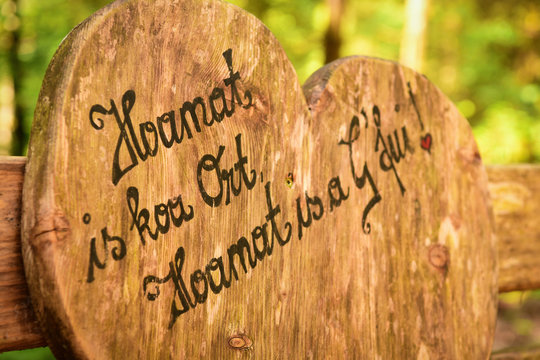 Hoamat
is koa Ort,
Hoamat is a G'fui!